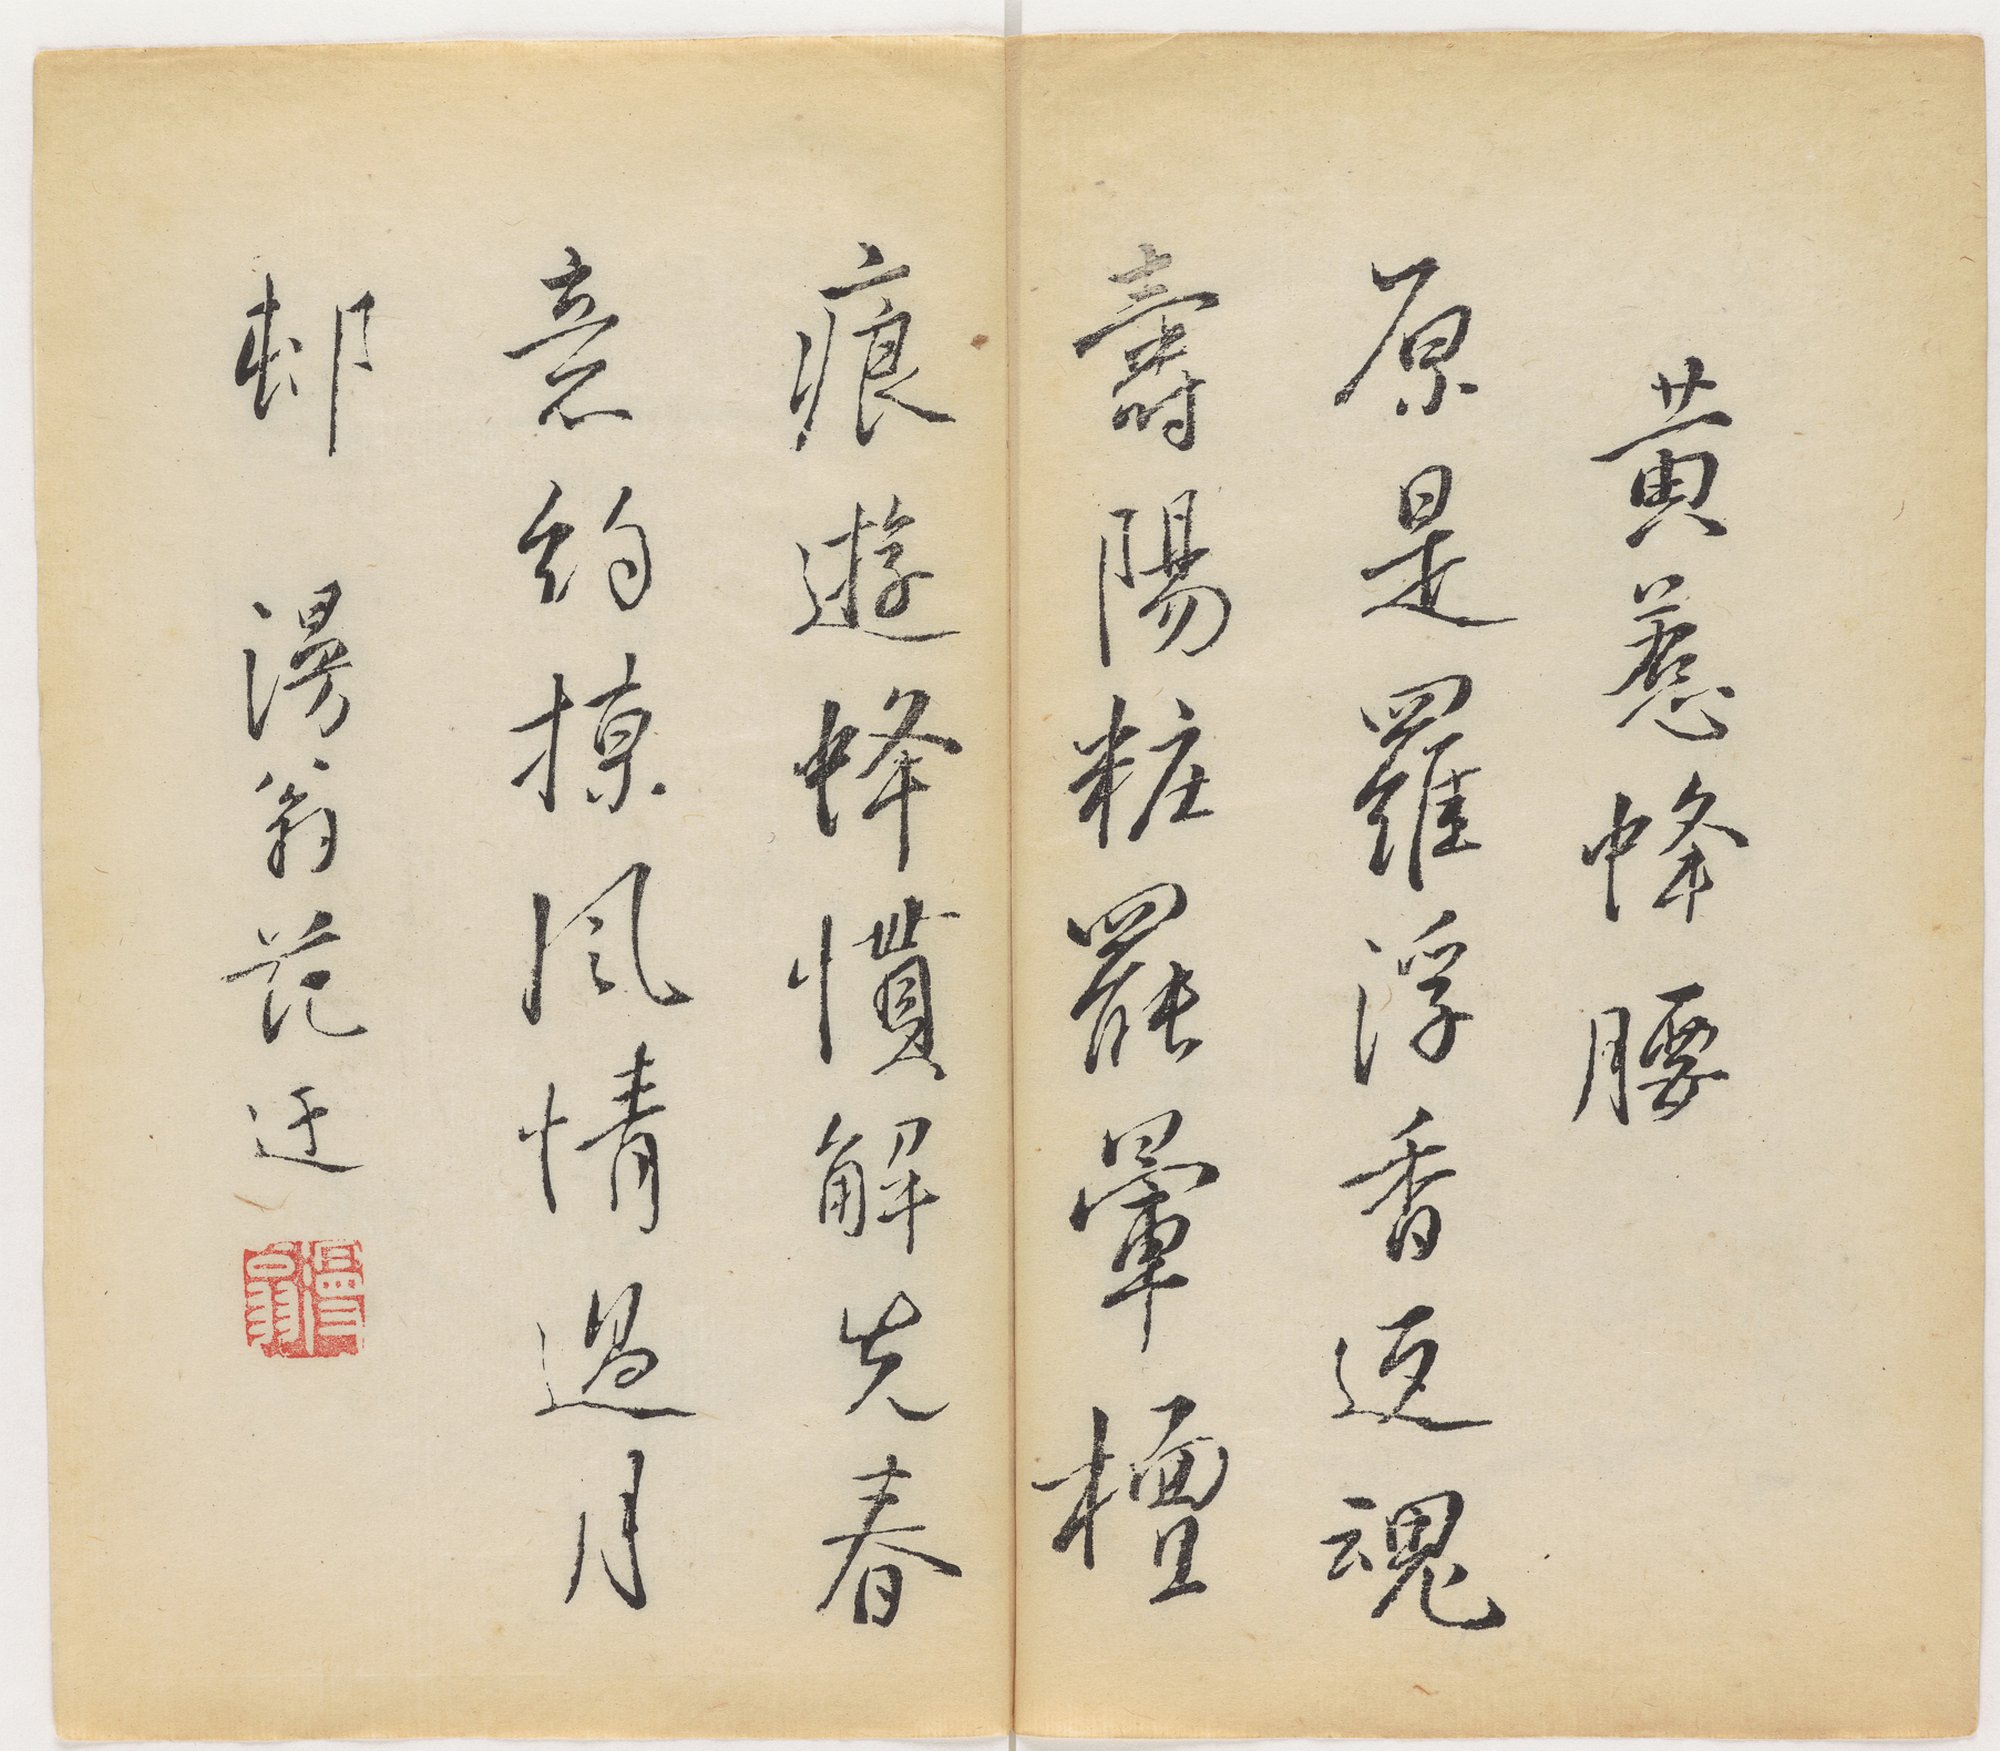 黃惹蜂腰
原是羅浮香返魂
壽陽粧罷暈檀
痕遊蜂慣解先春
意約掠風情過月
邨 漫翁范迂
漫翁